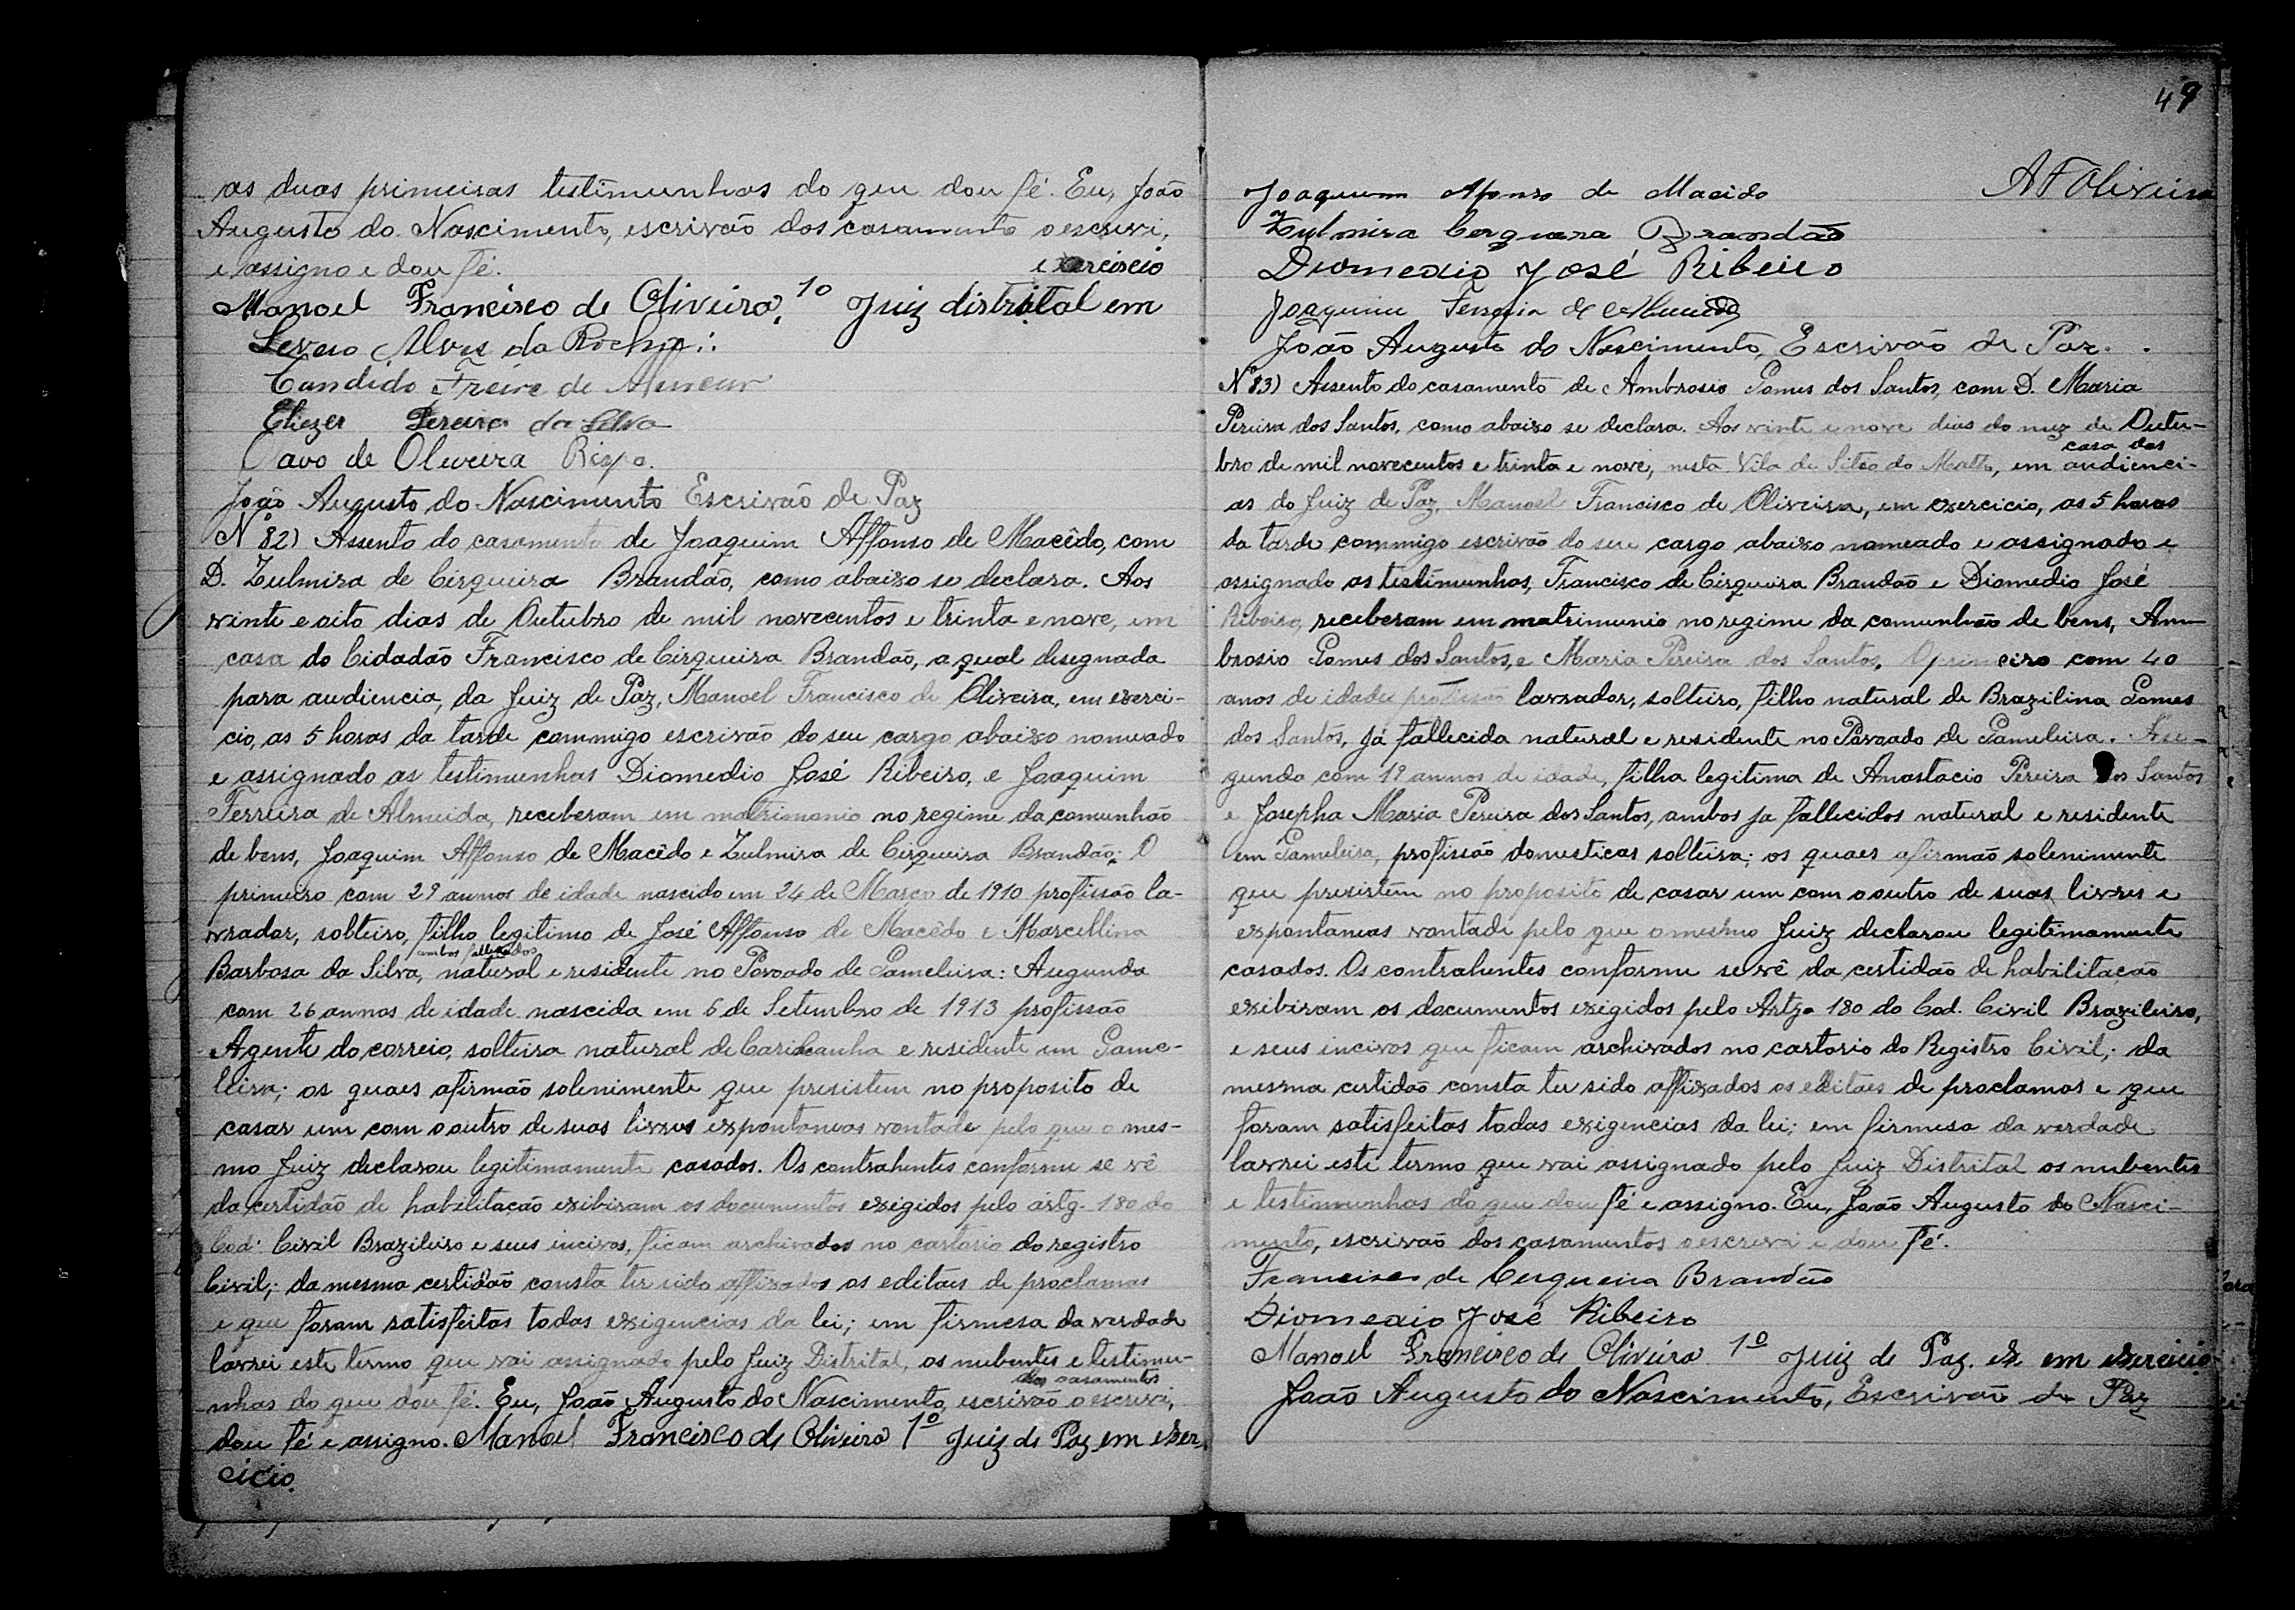 as duas primeiras testimunhas do que dou fé. Eu, João
Augusto do Nascimento, escrivão dos casamento o escrevi,
e assigno e dou fé.
exerciscio
Manoel Francisco de Oliveira, 1o Juiz distrital em
Severo Alves da Rocha
Candido Freire de
Eliezer Pereira da Silva
Olavo de Oliveira
João Augusto do Nascimento Escrivão de Paz
Nº 82) Assento do casamento de Joaquim Affonso de Macêdo, com
D. Zulmira de Cirqueira Brandão, como abaixo se declara. Aos
vinte e oito dias de Outubro de mil novecentos e trinta e nove, em
casa do Cidadão Francisco de Cirqueira Brandão, a qual disegnada
para audiencia, da Juiz de Paz, Manoel Francisco de Oliveira, em exerci-
cio, as 5 horas da tarde commigo escrivão do seu cargo abaixo nomeado
e assignado as testimunhas Diomedio José Ribeiro, e Joaquim
Ferreira de Almeida, receberam em matrimonio no regime da comunhão
de bens, Joaquim Affonso de Macêdo e Zulmira de Cirqueira Brandão; O
primeiro com 29 annos de idade nascido em 24 de Março de 1910 profissão la-
vrador, solteiro, filho legitimo de José Affonso de Macêdo e Marcellina
ambos fallecidos
Barbosa da Silva, natural e residente no Povoado de Gameleira: A segunda
com 26 annos de idade nascida em 6 de Setembro de 1913 profissão
Agente do correio, solteira natural de Carinhanha e residente em Game-
leira; os quaes afirmão solenimente que presistem no proposito de
casar um com o outro de suas livres expontaneas vontade pelo que o mes-
mo Juiz declarou legitimamente casados. Os contrahentes conforme se vê
da certidão de habilitação exibiram os documentos exigidos pelo artg. 180 do
Cod. Civil Brazileiro e seus incivos, ficam archivados no cartorio do registro
Civil; da mesma certidão consta ter sido affixados os editaes de proclamas
e que foram satisfeitas todas exigencias da lei; em firmesa da verdade
lavrei este termo que vai assignado pelo Juiz Distrital, os nubentes e testimu-
dos casamentos
nhas do que dou fé. Eu, João Augusto do Nascimento, escrivão o escrevi,
dou fé e assigno. Manoel Francisco de Oliveira 1º Juiz de Paz em exer-
cicio.
49
A F Oliveira
Joaquim Afonso de Macido
Zulmira Cerqueira Brandão
Diomedio José Ribeiro
Joaquim Ferreira de Almeida
João Augusto do Nascimento, Escrivão de Paz.
Nº 83) Assento do casamento de Ambrosio Gomes dos Santos, com D. Maria
Pereira dos Santos, como abaixo se declara. Aos vinte e nove dias do mez de Outu-
bro de mil novecentos e trinta e nove, nesta Vila de Sitio do Matto, em audienci-
casa das
as do Juiz de Paz, Manoel Francisco de Oliveira, em exercicio, as 5 horas
da tarde commigo escrivão do seu cargo abaixo nomeado e assignado e
assignado as testimunhas, Francisco de Cirqueira Brandão e Diomedio José
Ribeiro, receberam em matrimunio no regime da comunhão de bens, Am-
brosio Gomes dos Santos, e Maria Pereira dos Santos, O primeiro com 40
anos de idade profissão lavrador, solteiro, filho natural de Brazilina Gomes
dos Santos, já fallecida natural e residente no Povoado de Gameleira. A se-
gunda com 19 annos de idade, filha legitima de Anastacio Pereira dos Santos
e Josepha Maria Pereira dos Santos, ambos ja fallecidos natural e residente
em Gameleira, profissão domesticas solteira; os quaes afirmão solenimente
que presistem no proposito de casar um com o outro de suas livres e
expontaneas vontade pelo que o mesmo Juiz declarou legitimamente
casados. Os contrahentes conforme se vê da certidão de habilitação
exibiram os documentos exigidos pelo Artgo 180 do Cod. Civil Brazileiro,
e seus incivos que ficam archivados no cartorio do Registro Civil; da
mesma certidão consta ter sido affixados os editaes de proclamas e que
foram satisfeitas todas exigencias da lei; em firmesa da verdade
lavrei este termo que vai assignado pelo Juiz Distrital os nubentes
e testimunhas do que dou fé e assigno. Eu, João Augusto do Nasci-
mento, escrivão dos casamentos o escrevi e dou fé.
Francisco de Cerqueira Brandão
Diomedio José Ribeiro
Manoel Francisco de Oliveira 1º Juiz de Paz. ex em exercicio
João Augusto do Nascimento, Escrivão de Paz